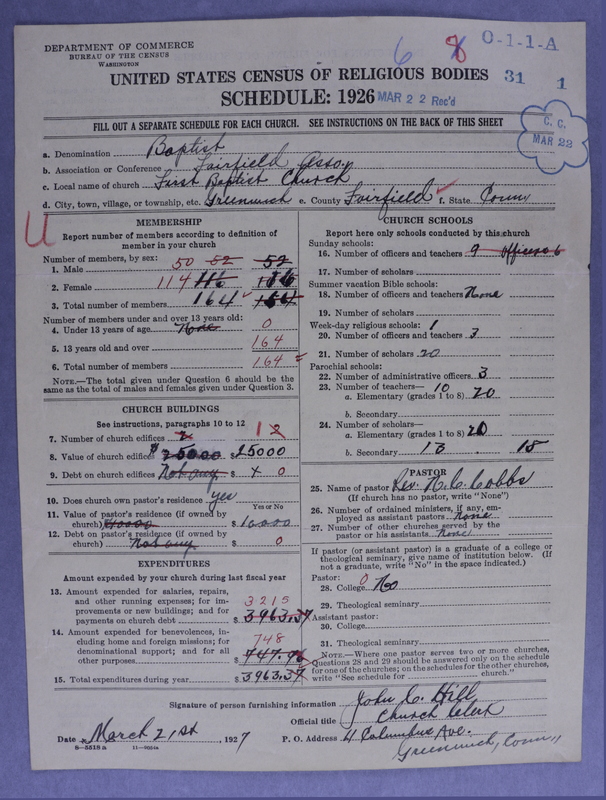 DEPARTMENT OF COMMERCE
BUREAU OF THE CENSUS
WASHINGTON
6 8 O-1-1-A
31 1
UNITED STATES CENSUS OF RELIGIOUS BODIES
SCHEDULE: 1926 MAR 22 Rec'd
C. C.
MAR 22
FILL OUT A SEPARATE SCHEDULE FOR EACH CHURCH. SEE INSTRUCTIONS ON THE BACK OF THIS SHEET
a. Denomination Baptist
b. Association or Conference Fairfield Asso.
c. Local name of church First Baptist Church
d. City, town, village, or township, etc. Greenwich e. County Fairfield f. State Conn
U
MEMBERSHIP
Report number of members according to definition of
member in your church
Number of members, by sex:
1. Male 50 52 52
2. Female 114 116
3. Total number of members 164 164
Number of members under and over 13 years old:
4. Under 13 years of age None 0
5. 13 years old and over 164
6. Total number of members 164
NOTE.—The total given under Question 6 should be the
same as the total of males and females given under Question 3.
CHURCH BUILDINGS
See instructions, paragraphs 10 to 12
7. Number of church edifices 2 1 2
8. Value of church edifices $ 25000
9. Debt on church edifices Not any X 0
10. Does church own pastor's residence yes
Yes or No
11. Value of pastor's residence (if owned by
church) 10000 $ 10,000
12. Debt on pastor's residence (if owned by
church) Not any $ 0
EXPENDITURES
Amount expended by your church during last fiscal year
13. Amount expended for salaries, repairs,
and other running expenses; for im-
provements or new buildings; and for
payments on church debt 3215 $ 3963.37
14. Amount expended for benevolences, in-
cluding home and foreign missions; for
denominational support; and for all
other purposes 748 $ 747.96
15. Total expenditures during year $ 3963.37
CHURCH SCHOOLS
Report here only schools conducted by this church
Sunday schools:
16. Number of officers and teachers 9 officers 6
17. Number of scholars
Summer vacation Bible schools:
18. Number of officers and teachers None
19. Number of scholars
Week-day religious schools: 1
20. Number of officers and teachers 3
21. Number of scholars 20
Parochial schools:
22. Number of administrative officers 3
23. Number of teachers— 10
a. Elementary (grades 1 to 8) 20
b. Secondary
24. Number of scholars—
a. Elementary (grades 1 to 8) 20
b. Secondary 13 15
PASTOR
25. Name of pastor Rev. N. C. Cobbs
(If church has no pastor, write "None")
26. Number of ordained ministers, if any, em-
ployed as assistant pastors None
27. Number of other churches served by the
pastor or his assistants None
If pastor (or assistant pastor) is a graduate of a college or
theological seminary, give name of institution below. (If
not a graduate, write "No" in the space indicated.)
Pastor:
28. College 0 No
29. Theological seminary
Assistant pastor:
30. College
31. Theological seminary
NOTE.—Where one pastor serves two or more churches,
Questions 28 and 29 should be answered only on the schedule
for one of the churches; on the schedules for the other churches,
write "See schedule for church."
Signature of person furnishing information John C. Hill
Official title Church Clerk
Date March 21st, 1927 P. O. Address 41 Columbus Ave.
Greenwich, Conn,
8—5518 a